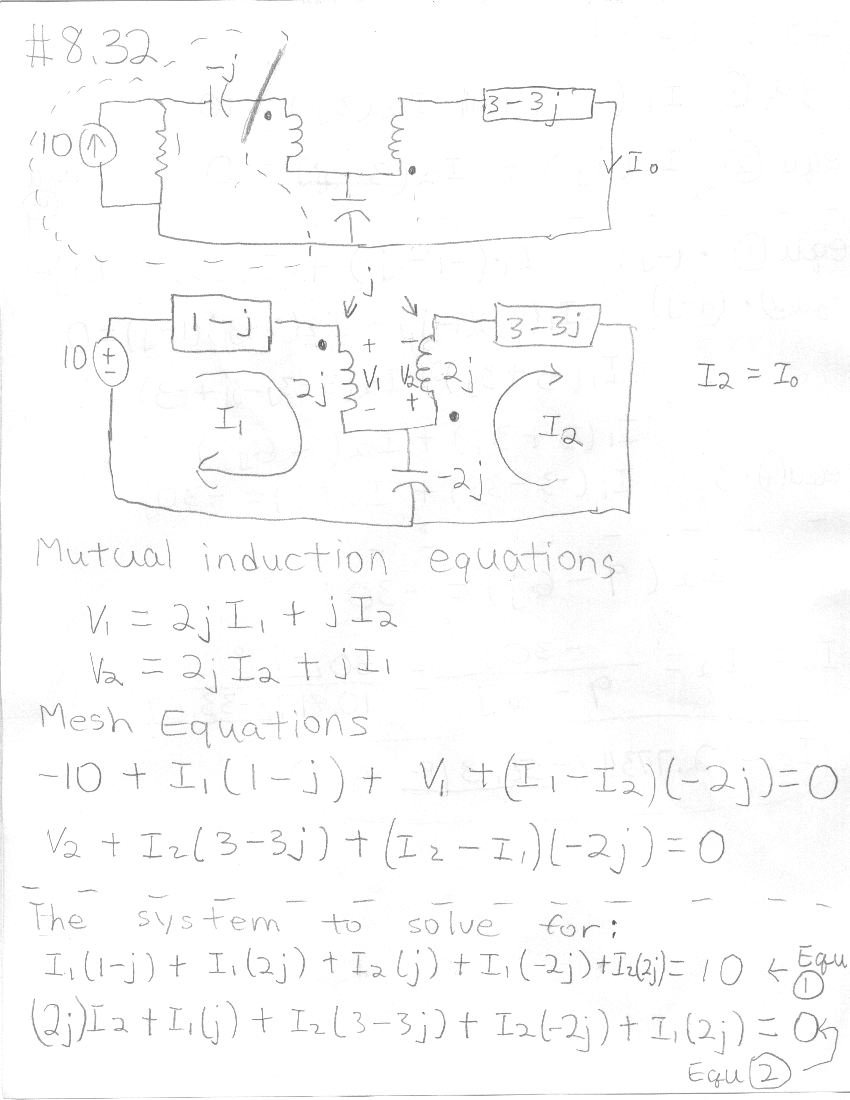 #8.32
-j
3-3j
10
1
I₀
j
1-j
3-3j
10
+
-
+
2j
V₁
V₂
2j
-
+
I₁
I₂
I₂ = I₀
-2j
Mutual induction equations
V₁ = 2jI₁ + jI₂
V₂ = 2jI₂ + jI₁
Mesh Equations
-10 + I₁(1-j) + V₁ + (I₁-I₂)(-2j)=0
V₂ + I₂(3-3j) + (I₂-I₁)(-2j)=0
The system to solve for:
I₁(1-j) + I₁(2j) + I₂(j) + I₁(-2j)+I₂(2j)= 10 ← Equ ①
(2j)I₂ + I₁(j) + I₂(3-3j) + I₂(-2j) + I₁(2j) = 0
Equ ②